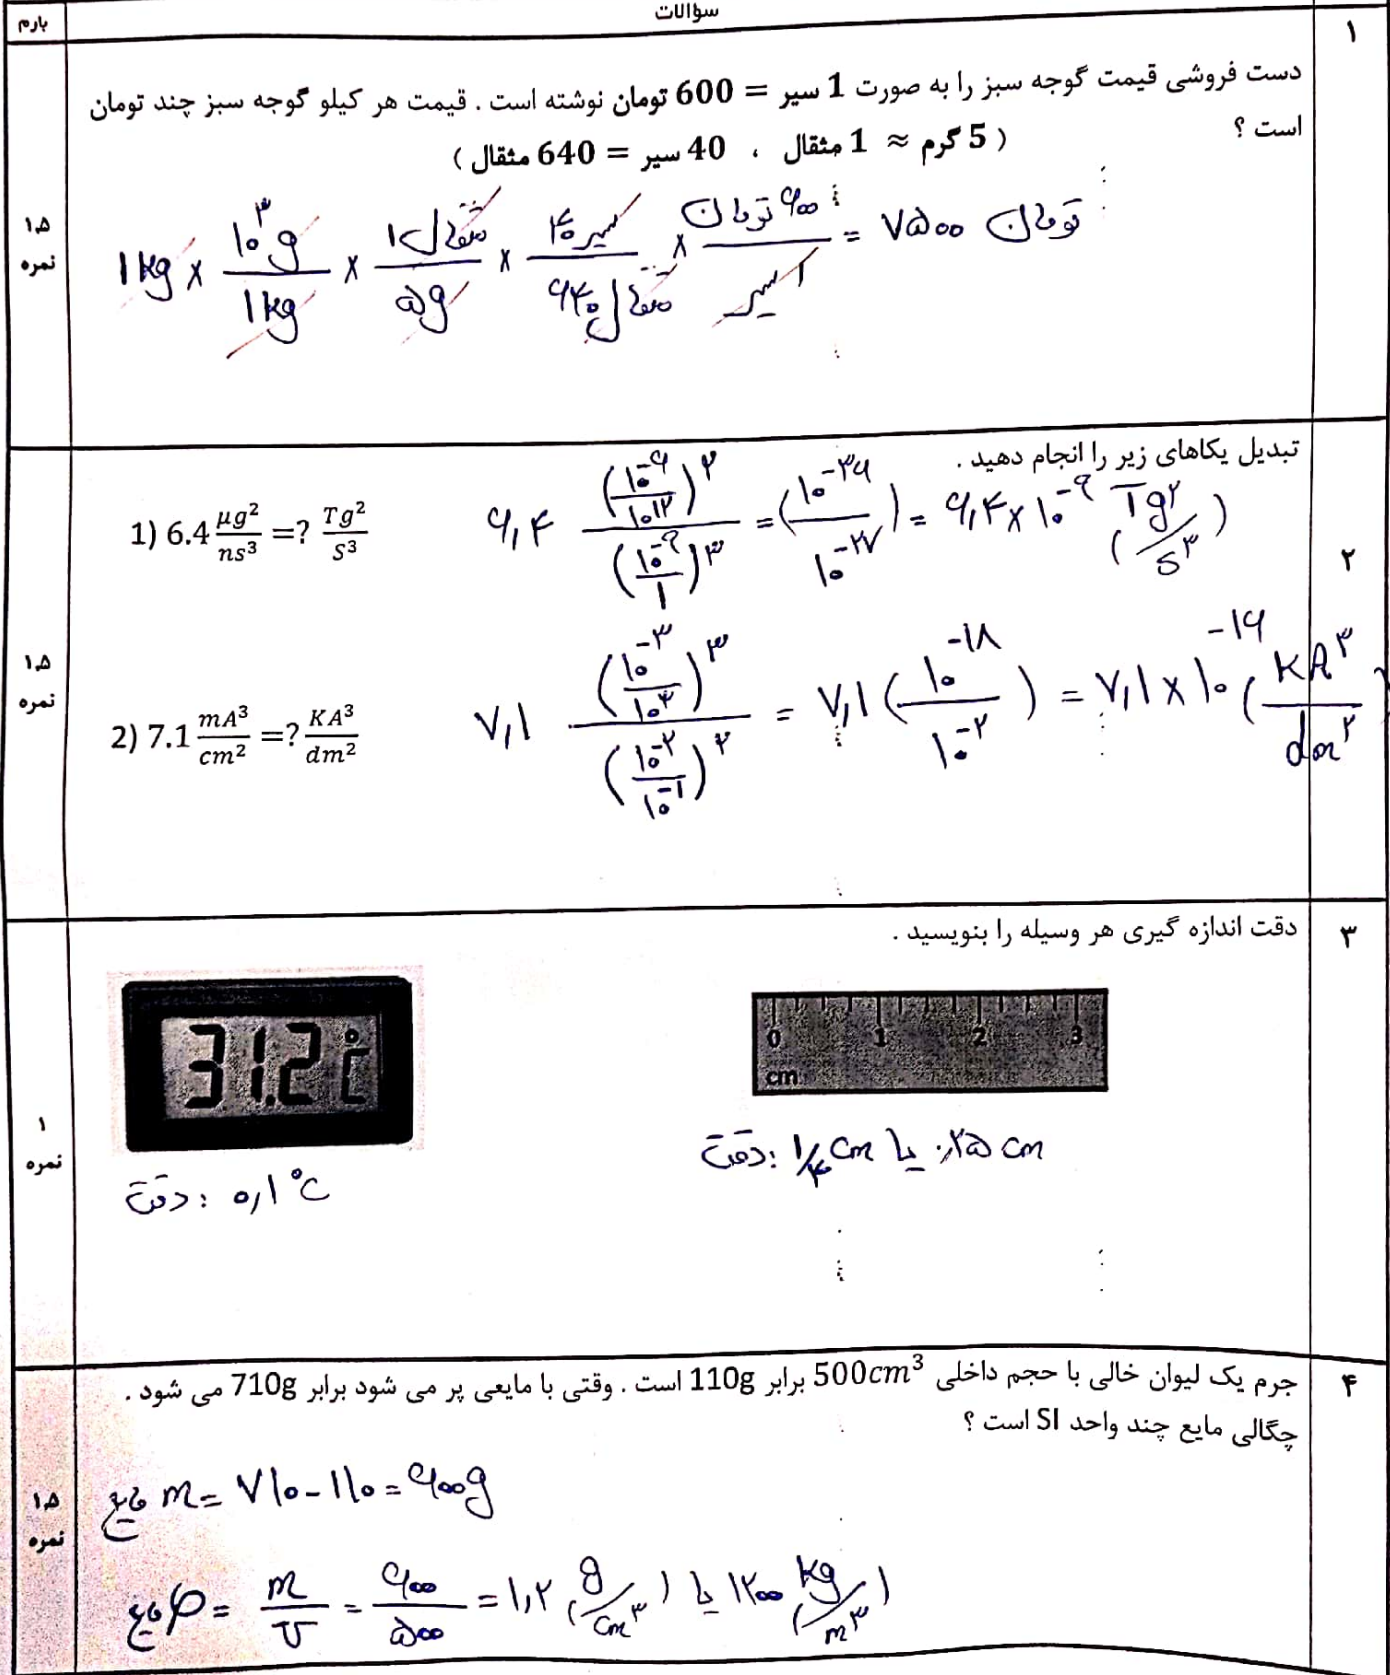 بارم
سؤالات
۱
دست فروشی قیمت گوجه سبز را به صورت 1 سیر = 600 تومان نوشته است . قیمت هر کیلو گوجه سبز چند تومان
است ؟
( 5 گرم ≈ 1 مثقال ، 40 سیر = 640 مثقال )
۱.۵
نمره
۱kg × ۱۰^۳g/۱kg × ۱مثقال/۵g × ۴۰سیر/۶۴۰مثقال × ۶۰۰تومان/۱سیر = ۷۵۰۰ تومان
۲
تبدیل یکاهای زیر را انجام دهید .
1) 6.4 μg²/ns³ =? Tg²/S³
۶٫۴ (۱۰^-۶/۱۰^۱۲)^۲/(۱۰^-۹/۱)^۳ = (۱۰^-۳۶/۱۰^-۲۷) = ۶٫۴ × ۱۰^-۹ (Tg^۲/s^۳)
۱.۵
نمره
2) 7.1 mA³/cm² =? KA³/dm²
۷٫۱ (۱۰^-۳/۱۰^۳)^۳/(۱۰^-۲/۱۰^-۱)^۲ = ۷٫۱ (۱۰^-۱۸/۱۰^-۲) = ۷٫۱ × ۱۰^-۱۶ (KA^۳/dm^۲)
۳
دقت اندازه گیری هر وسیله را بنویسید .
31.2 °C
0 1 2 3
cm
دقت: ۱/۴ cm یا ۰٫۲۵ cm
دقت: ۰٫۱ °C
۱
نمره
۴
جرم یک لیوان خالی با حجم داخلی 500cm³ برابر 110g است . وقتی با مایعی پر می شود برابر 710g می شود .
چگالی مایع چند واحد SI است ؟
۱.۵
نمره
m مایع = ۷۱۰ - ۱۱۰ = ۶۰۰g
ρ مایع = m/V = ۶۰۰/۵۰۰ = ۱٫۲ (g/cm^۳) یا ۱۲۰۰ (kg/m^۳)